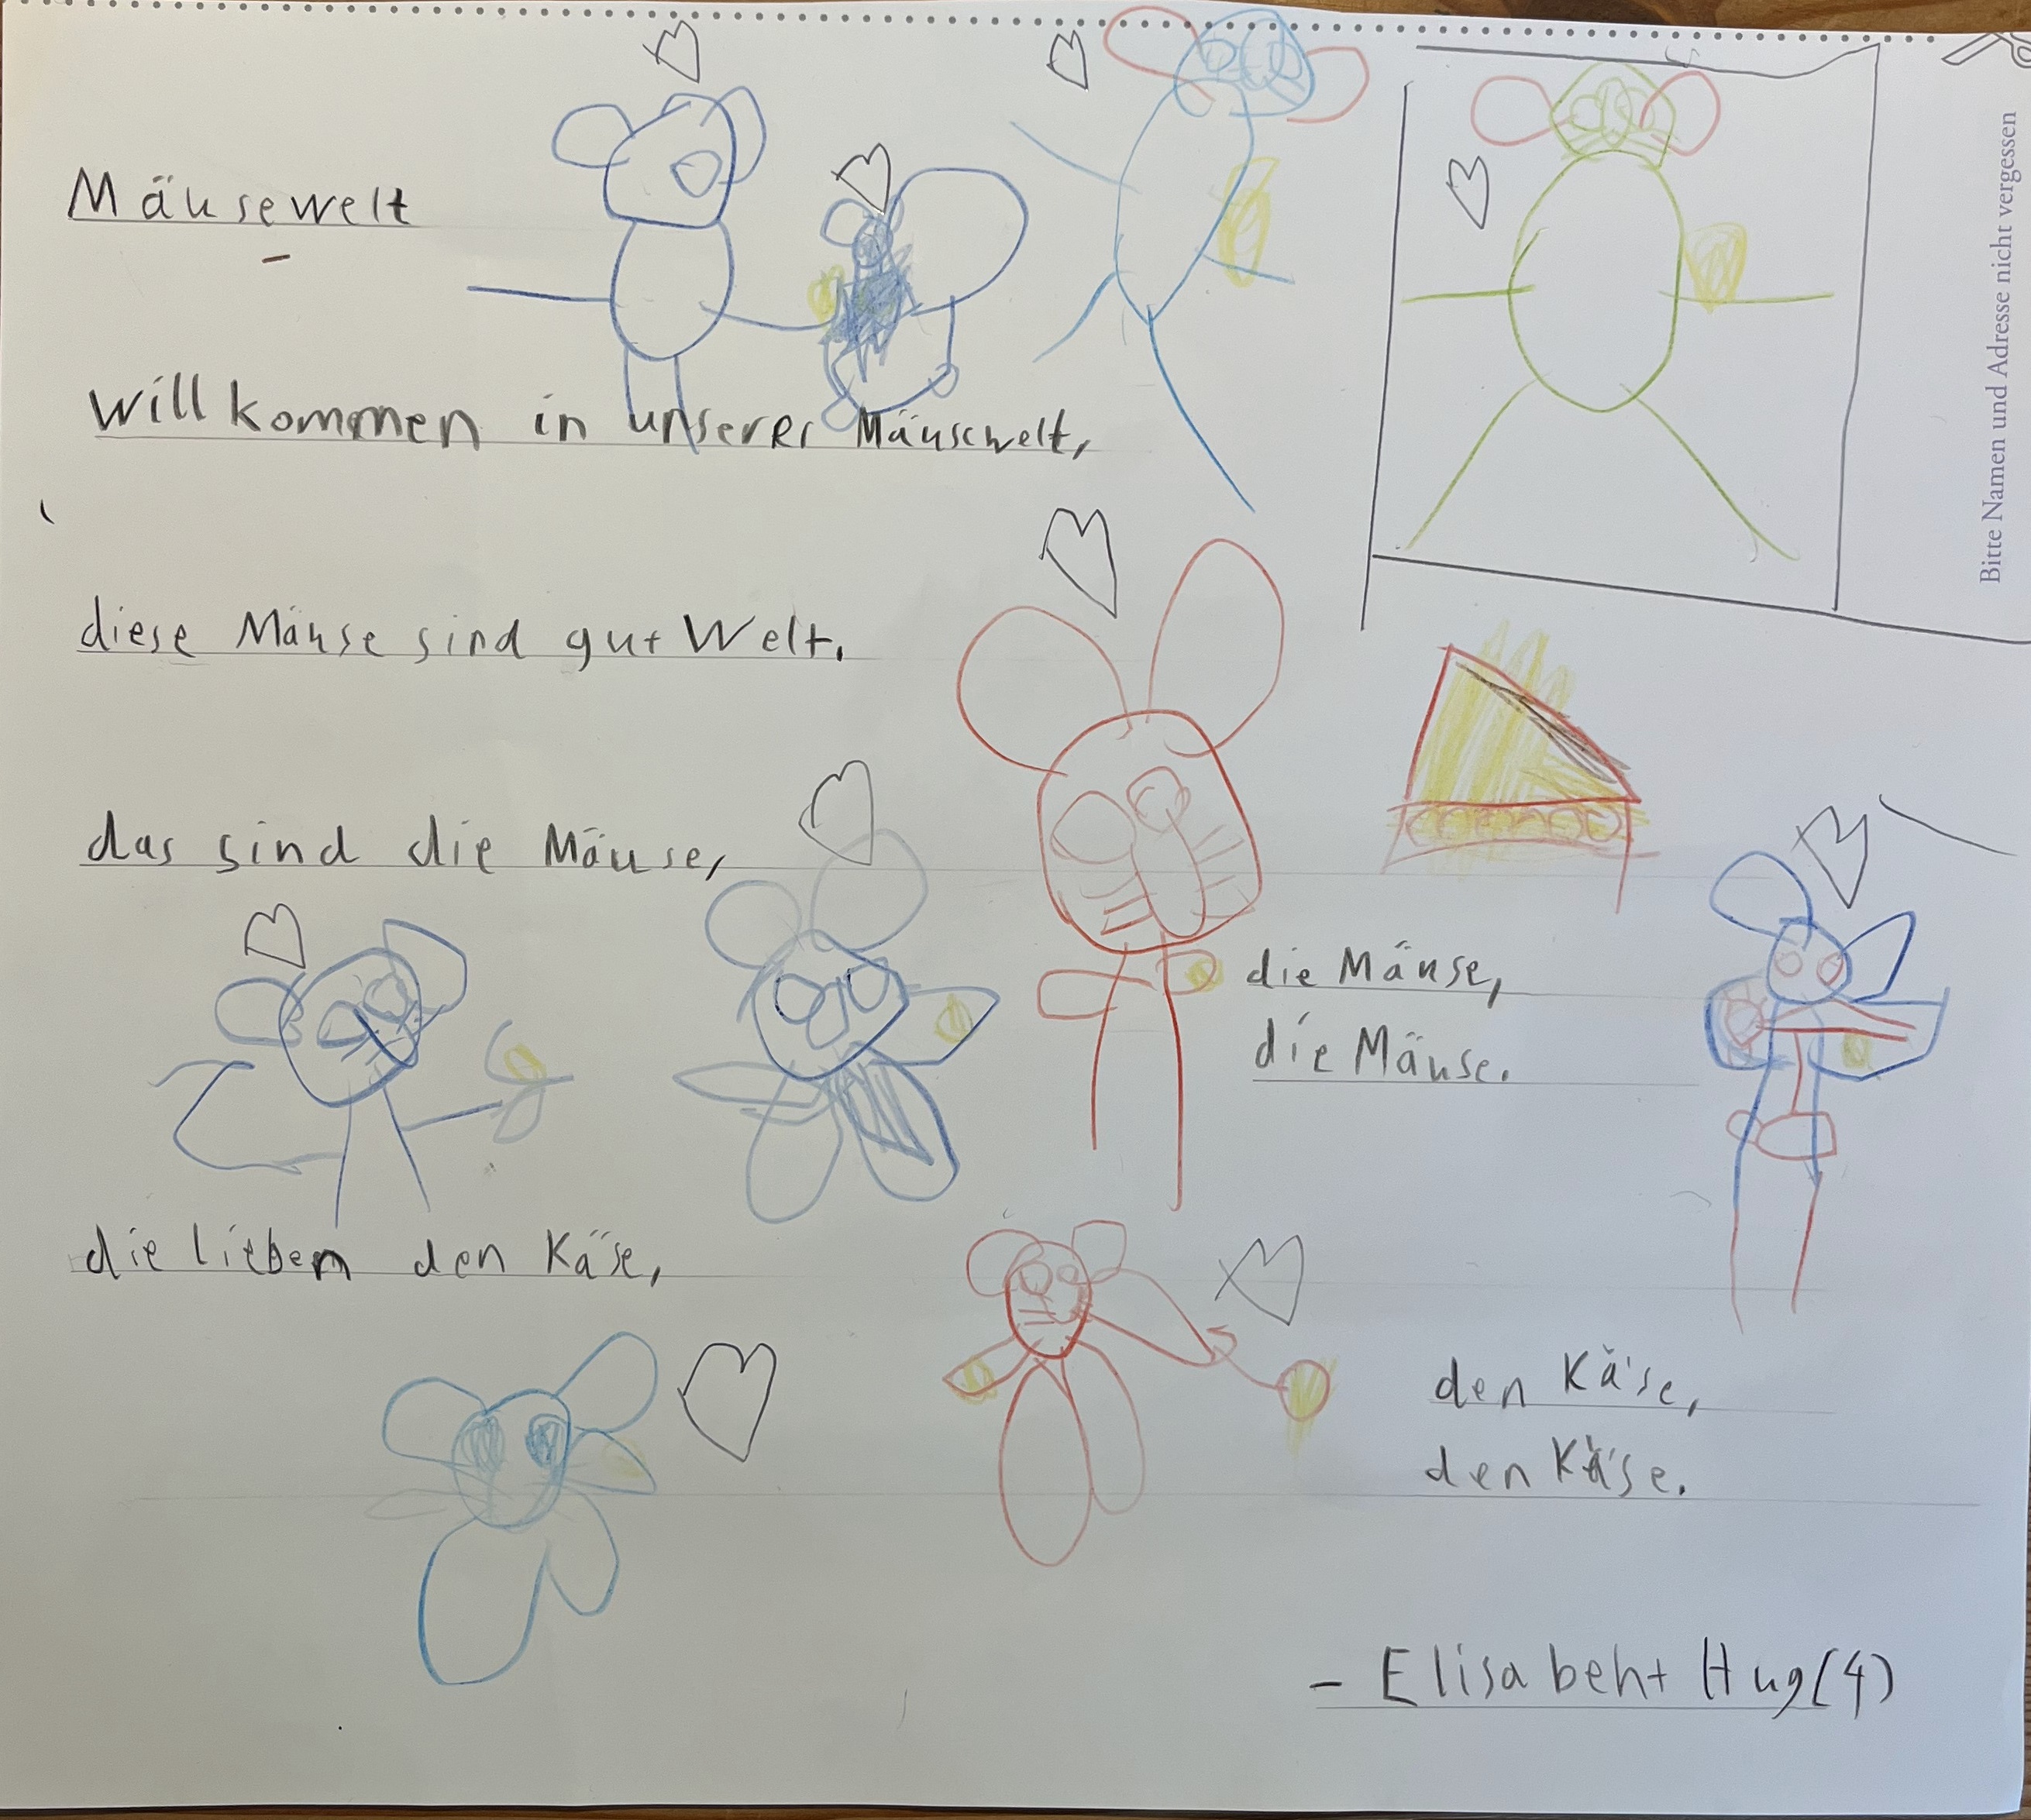 Mäusewelt
willkommen in unserer Mäusewelt,
diese Mäuse sind gut Welt.
das sind die Mäuse,
die Mäuse,
die Mäuse.
die lieben den Käse,
den Käse,
den Käse.
- Elisabeht Hug (4)
Bitte Namen und Adresse nicht vergessen